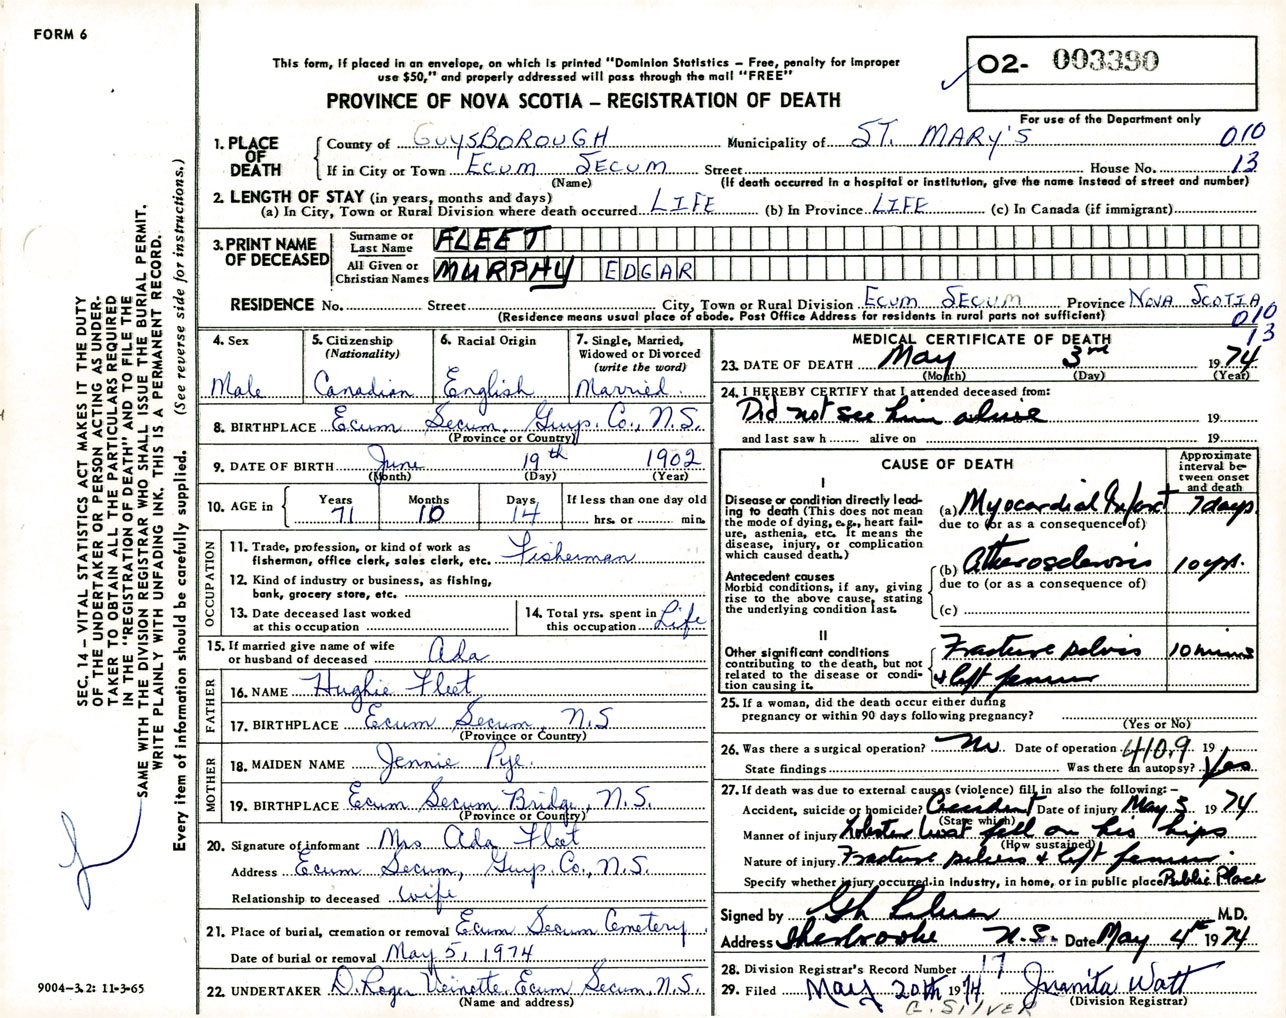 FORM 6
This form, if placed in an envelope, on which is printed "Dominion Statistics – Free, penalty for improper
use $50," and properly addressed will pass through the mail "FREE"
PROVINCE OF NOVA SCOTIA – REGISTRATION OF DEATH
O2- 003390
For use of the Department only
1. PLACE OF DEATH
County of GUYSBOROUGH Municipality of ST. MARY'S 010
If in City or Town ECUM SECUM Street House No. 13
(Name) (If death occurred in a hospital or institution, give the name instead of street and number)
2. LENGTH OF STAY (in years, months and days)
(a) In City, Town or Rural Division where death occurred LIFE (b) In Province LIFE (c) In Canada (if immigrant)
3. PRINT NAME OF DECEASED
Surname or Last Name FLEET
All Given or Christian Names MURPHY EDGAR
RESIDENCE No. Street City, Town or Rural Division ECUM SECUM Province NOVA SCOTIA
(Residence means usual place of abode. Post Office Address for residents in rural parts not sufficient) 010
13
4. Sex 5. Citizenship (Nationality) 6. Racial Origin 7. Single, Married, Widowed or Divorced (write the word)
Male Canadian English Married
8. BIRTHPLACE Ecum Secum, Guys. Co., N.S.
(Province or Country)
9. DATE OF BIRTH June 19th 1902
(Month) (Day) (Year)
10. AGE in Years Months Days If less than one day old
71 10 14 hrs. or min.
OCCUPATION
11. Trade, profession, or kind of work as
fisherman, office clerk, sales clerk, etc. Fisherman
12. Kind of industry or business, as fishing,
bank, grocery store, etc.
13. Date deceased last worked
at this occupation
14. Total yrs. spent in
this occupation Life
15. If married give name of wife
or husband of deceased Ada
FATHER
16. NAME Hughie Fleet
17. BIRTHPLACE Ecum Secum, N.S
(Province or Country)
MOTHER
18. MAIDEN NAME Jennie Pye.
19. BIRTHPLACE Ecum Secum Bridge, N.S.
(Province or Country)
20. Signature of informant Mrs Ada Fleet
Address Ecum Secum, Guys. Co., N.S.
Relationship to deceased wife
21. Place of burial, cremation or removal Ecum Secum Cemetery.
Date of burial or removal May 5, 1974
22. UNDERTAKER D. Roger Veinotte, Ecum Secum, N.S.
(Name and address)
MEDICAL CERTIFICATE OF DEATH
23. DATE OF DEATH May 3rd 1974
(Month) (Day) (Year)
24. I HEREBY CERTIFY that I attended deceased from:
Did not see him alive 19
and last saw h alive on 19
CAUSE OF DEATH
Approximate interval between onset and death
I
Disease or condition directly leading to death (This does not mean the mode of dying, e.g., heart failure, asthenia, etc. It means the disease, injury, or complication which caused death.)
(a) Myocardial Infarct 7 days
due to (or as a consequence of)
Antecedent causes
Morbid conditions, if any, giving rise to the above cause, stating the underlying condition last.
(b) Atherosclerosis 10 yrs.
due to (or as a consequence of)
(c)
II
Other significant conditions
contributing to the death, but not related to the disease or condition causing it.
Fracture pelvis 10 mins
& left femur
25. If a woman, did the death occur either during
pregnancy or within 90 days following pregnancy?
(Yes or No)
26. Was there a surgical operation? No Date of operation 410.9 19
State findings Was there an autopsy? Yes
27. If death was due to external causes (violence) fill in also the following:–
Accident, suicide or homicide? Accident Date of injury May 3 1974
(State which)
Manner of injury Lobster boat fell on his hips
(How sustained)
Nature of injury Fracture pelvis & left femur.
Specify whether injury occurred in industry, in home, or in public place Public Place
Signed by M.D.
Address Sherbrooke N.S. Date May 4th 1974
28. Division Registrar's Record Number 17
29. Filed May 20th 1974 Juanita Watt
(Division Registrar)
G. SILVER
SEC. 14 – VITAL STATISTICS ACT MAKES IT THE DUTY
OF THE UNDERTAKER OR PERSON ACTING AS UNDER-
TAKER TO OBTAIN ALL THE PARTICULARS REQUIRED
IN THE "REGISTRATION OF DEATH" AND TO FILE THE
SAME WITH THE DIVISION REGISTRAR WHO SHALL ISSUE THE BURIAL PERMIT.
WRITE PLAINLY WITH UNFADING INK. THIS IS A PERMANENT RECORD.
Every item of information should be carefully supplied. (See reverse side for instructions.)
9004-3.2: 11-3-65